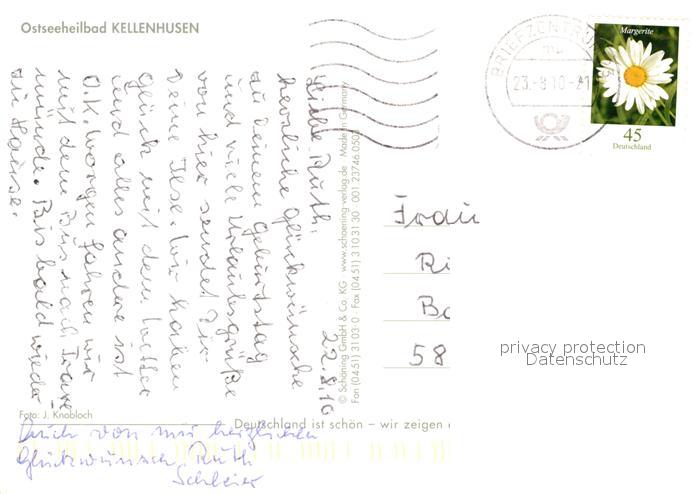 Ostseeheilbad KELLENHUSEN
22.8.10
Liebe Ruth,
herzliche Glückwünsche
zu deinem Geburtstag
und viele Urlaubsgrüße
von hier sendet Dir
Deine Ilse. Wir haben
Glück mit dem Wetter
und alles andere ist
O.K. Morgen fahren wir
mit dem Bus nach Trave
münde. Bis bald wieder
zu Hause.
Auch von mir herzlichen
Glückwunsch Ruth
Foto: J. Knobloch
Deutschland ist schön – wir zeigen
© Schöning GmbH & Co. KG · www.schoening-verlag.de · Made in Germany
Fon (04 51) 31 03-0 · Fax (04 51) 3 10 31 30 · 001 23746 0503
BRIEFZENTRUM
23.-8.10-21
Margerite
45
Deutschland
Frau
Ri
Bo
58
privacy protection
Datenschutz